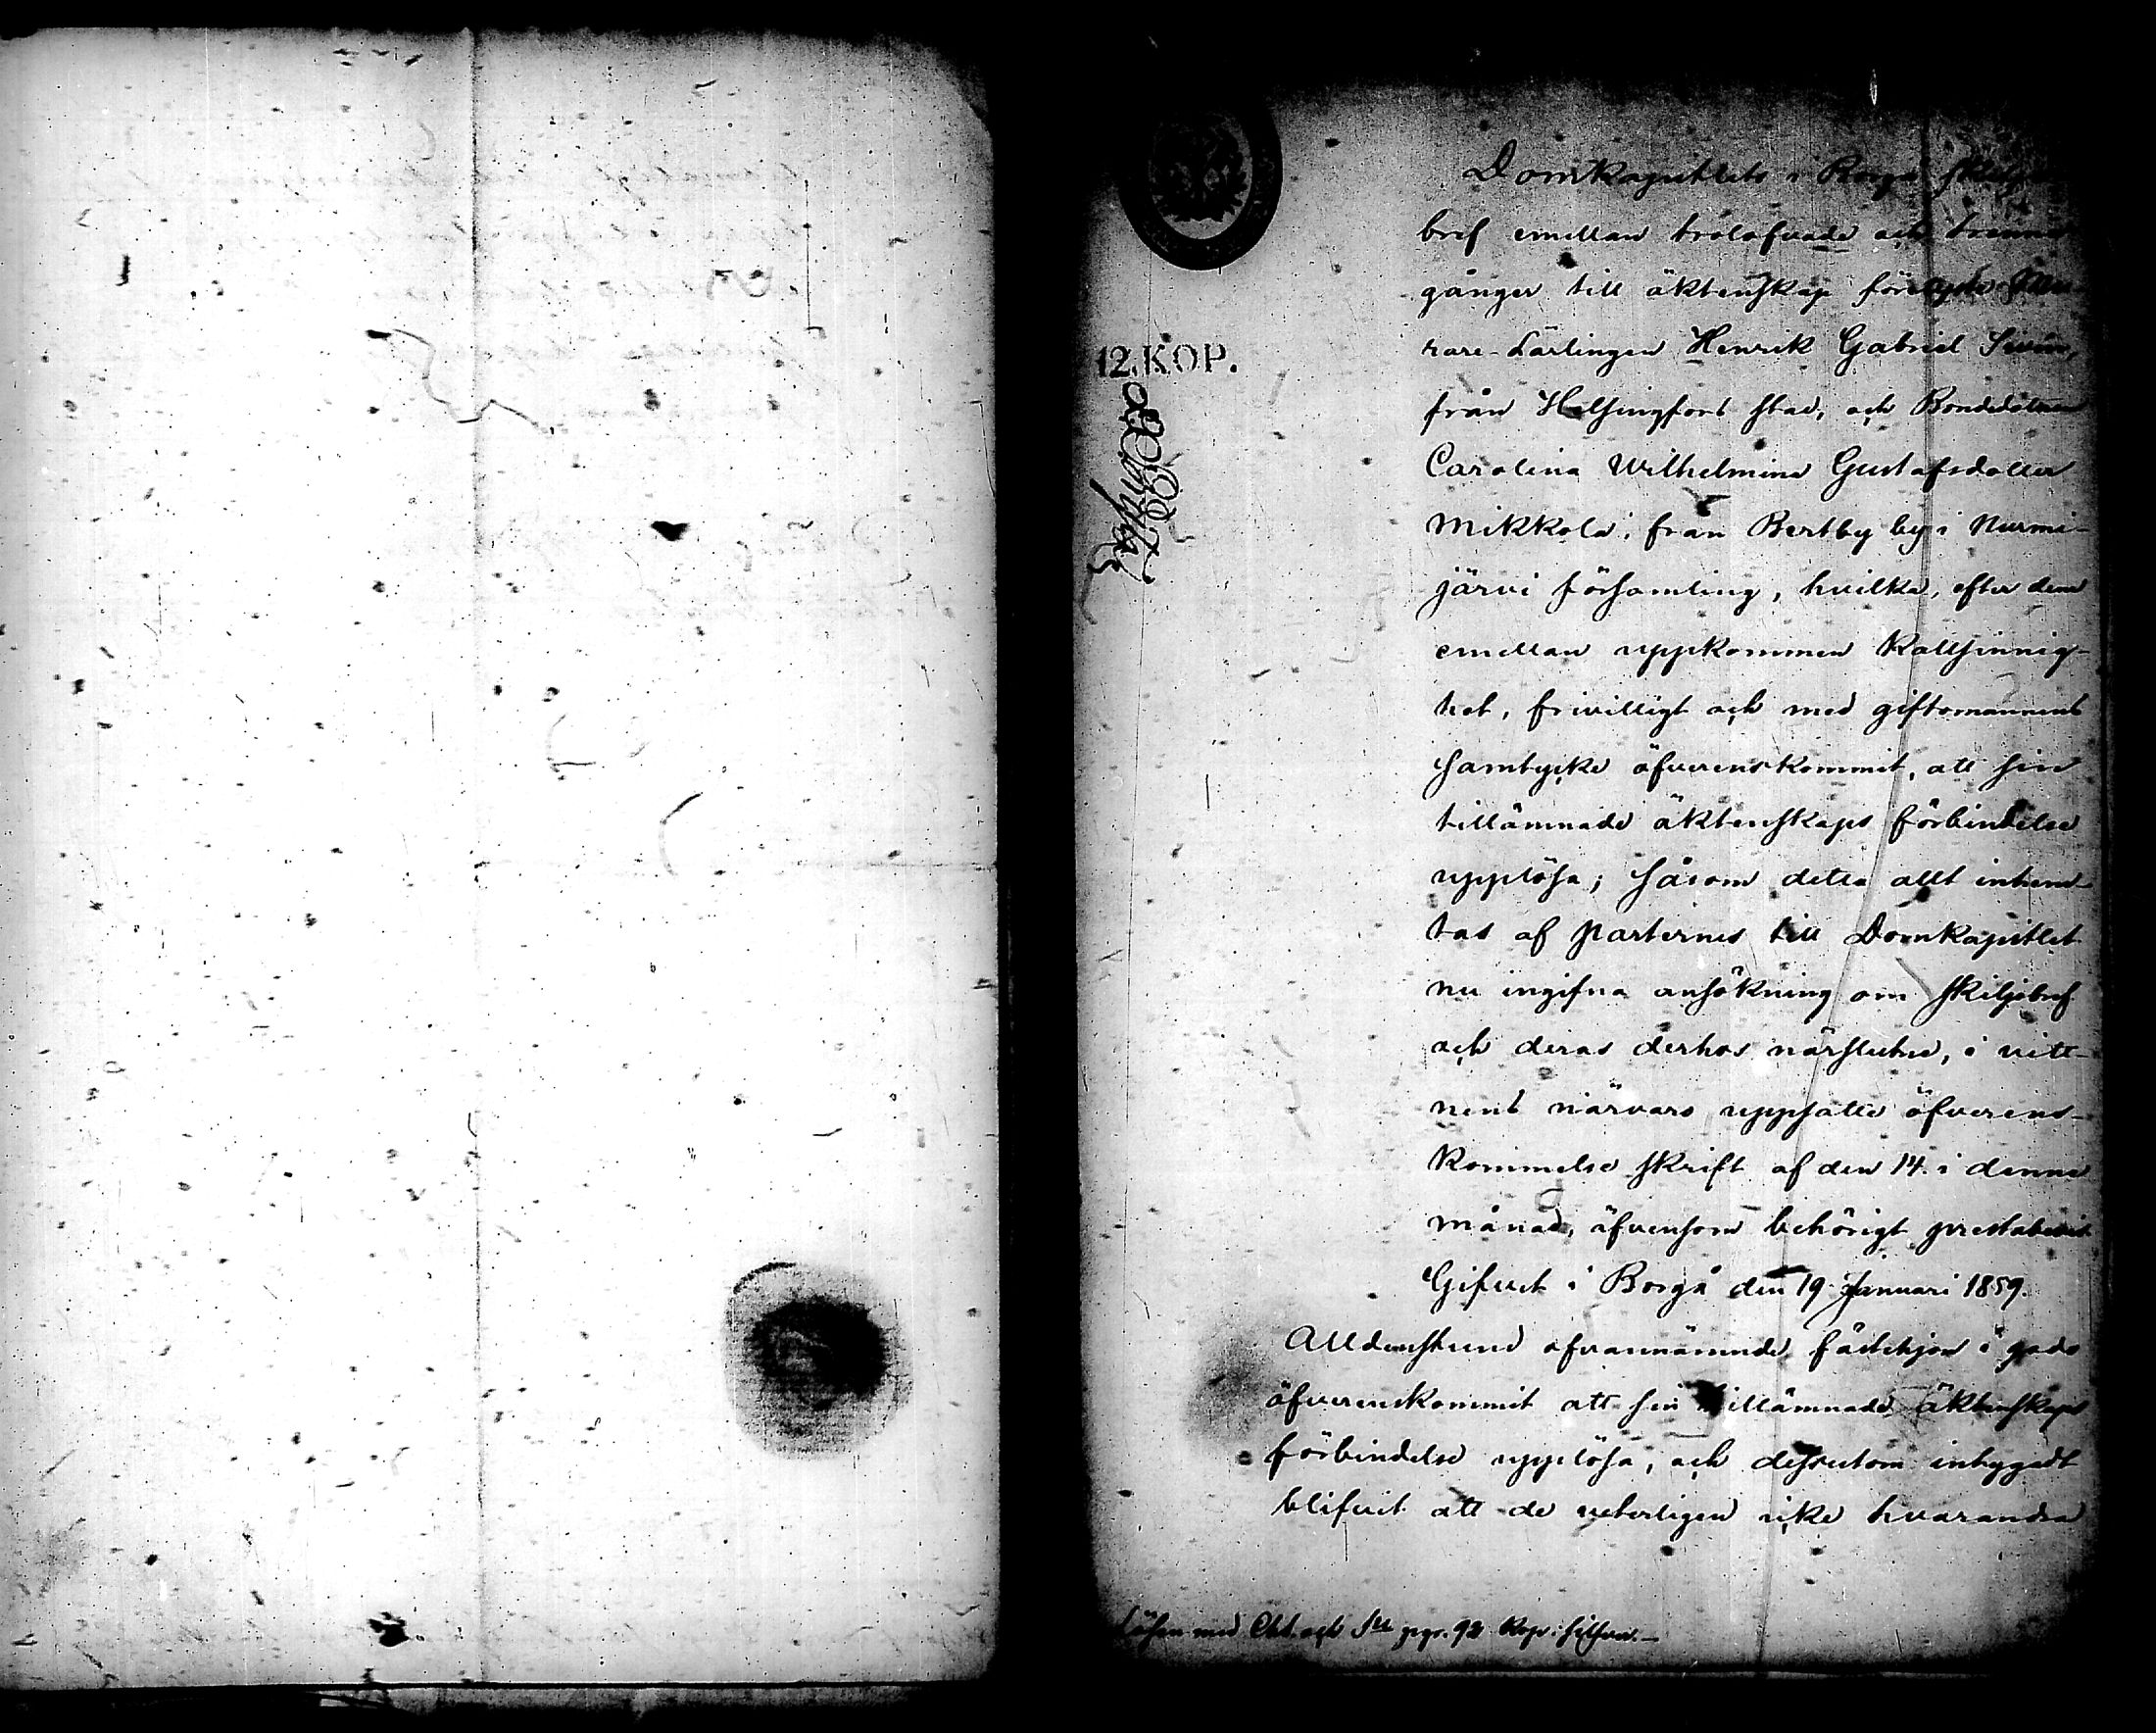 Domkapitlets i Borgå skiljo-
bref emellan trolofvade och trenne
gånger till äktenskap förelyste
rare-Lärlingen Henrik Gabriel
från Helsingfors stad, och Bondedottren
Carolina Wilhelmina Gustafsdotter
Mikkola, från Bertby by i Nurmi-
järvi församling, hvilka, efter dem
emellan uppkommen kallsinnig-
het, frivilligt och med giftomannens
samtycke öfverenskommit, att sin
tillämnade äktenskaps förbindelse
upplösa; såsom detta allt inhem-
tas af parternes till Domkapitlet
nu ingifna ansökning om skiljobref
och deras derhos närslutne, i vitt-
nens närvaro uppsatte öfverens-
kommelse skrift af den 14. i denna
månad, äfvensom behörigt prestabevis
Gifvet i Borgå den 19 Januari 1859.
Alldenstund ofvannämnde fästehjon i godo
öfverenskommit att sin tillämnade äktenskaps
förbindelse upplösa, och dessutom intygadt
blifvit att de veterligen icke hvarandra
12.KOP.
Lösen med Cht. och ppr. 92 kop: silfver.